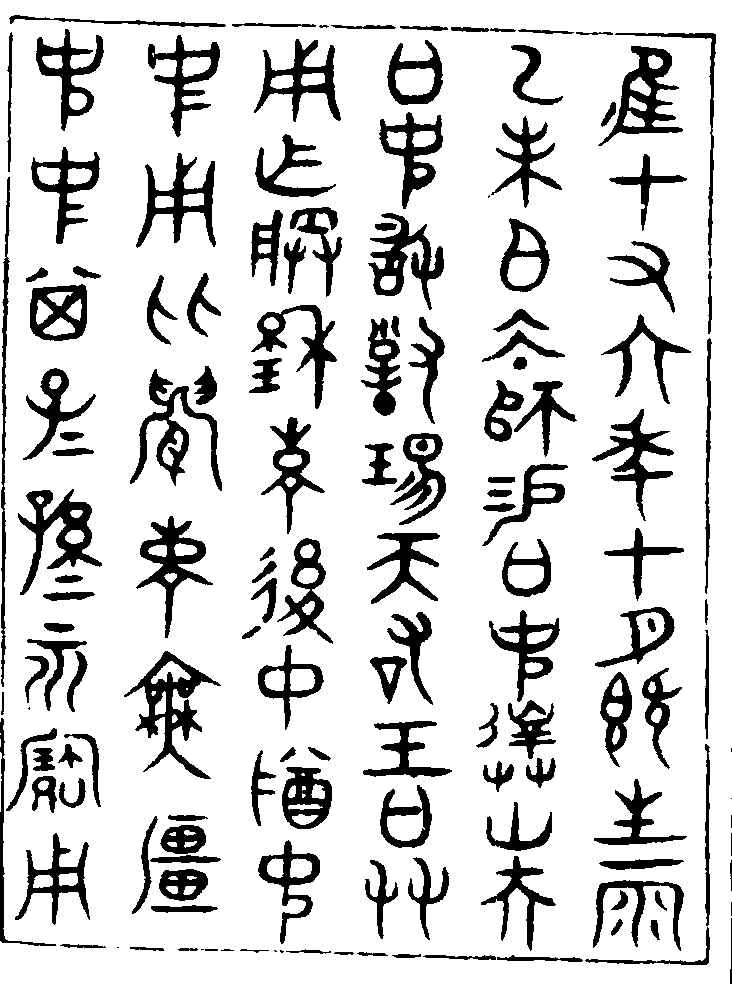 隹十又六年七月既生霸
乙未白大師易白克僕卅夫
白克敢對揚天右王白友
用乍朕穆考後中尊
克用匄眉無彊
克克其子子孫孫永寶用